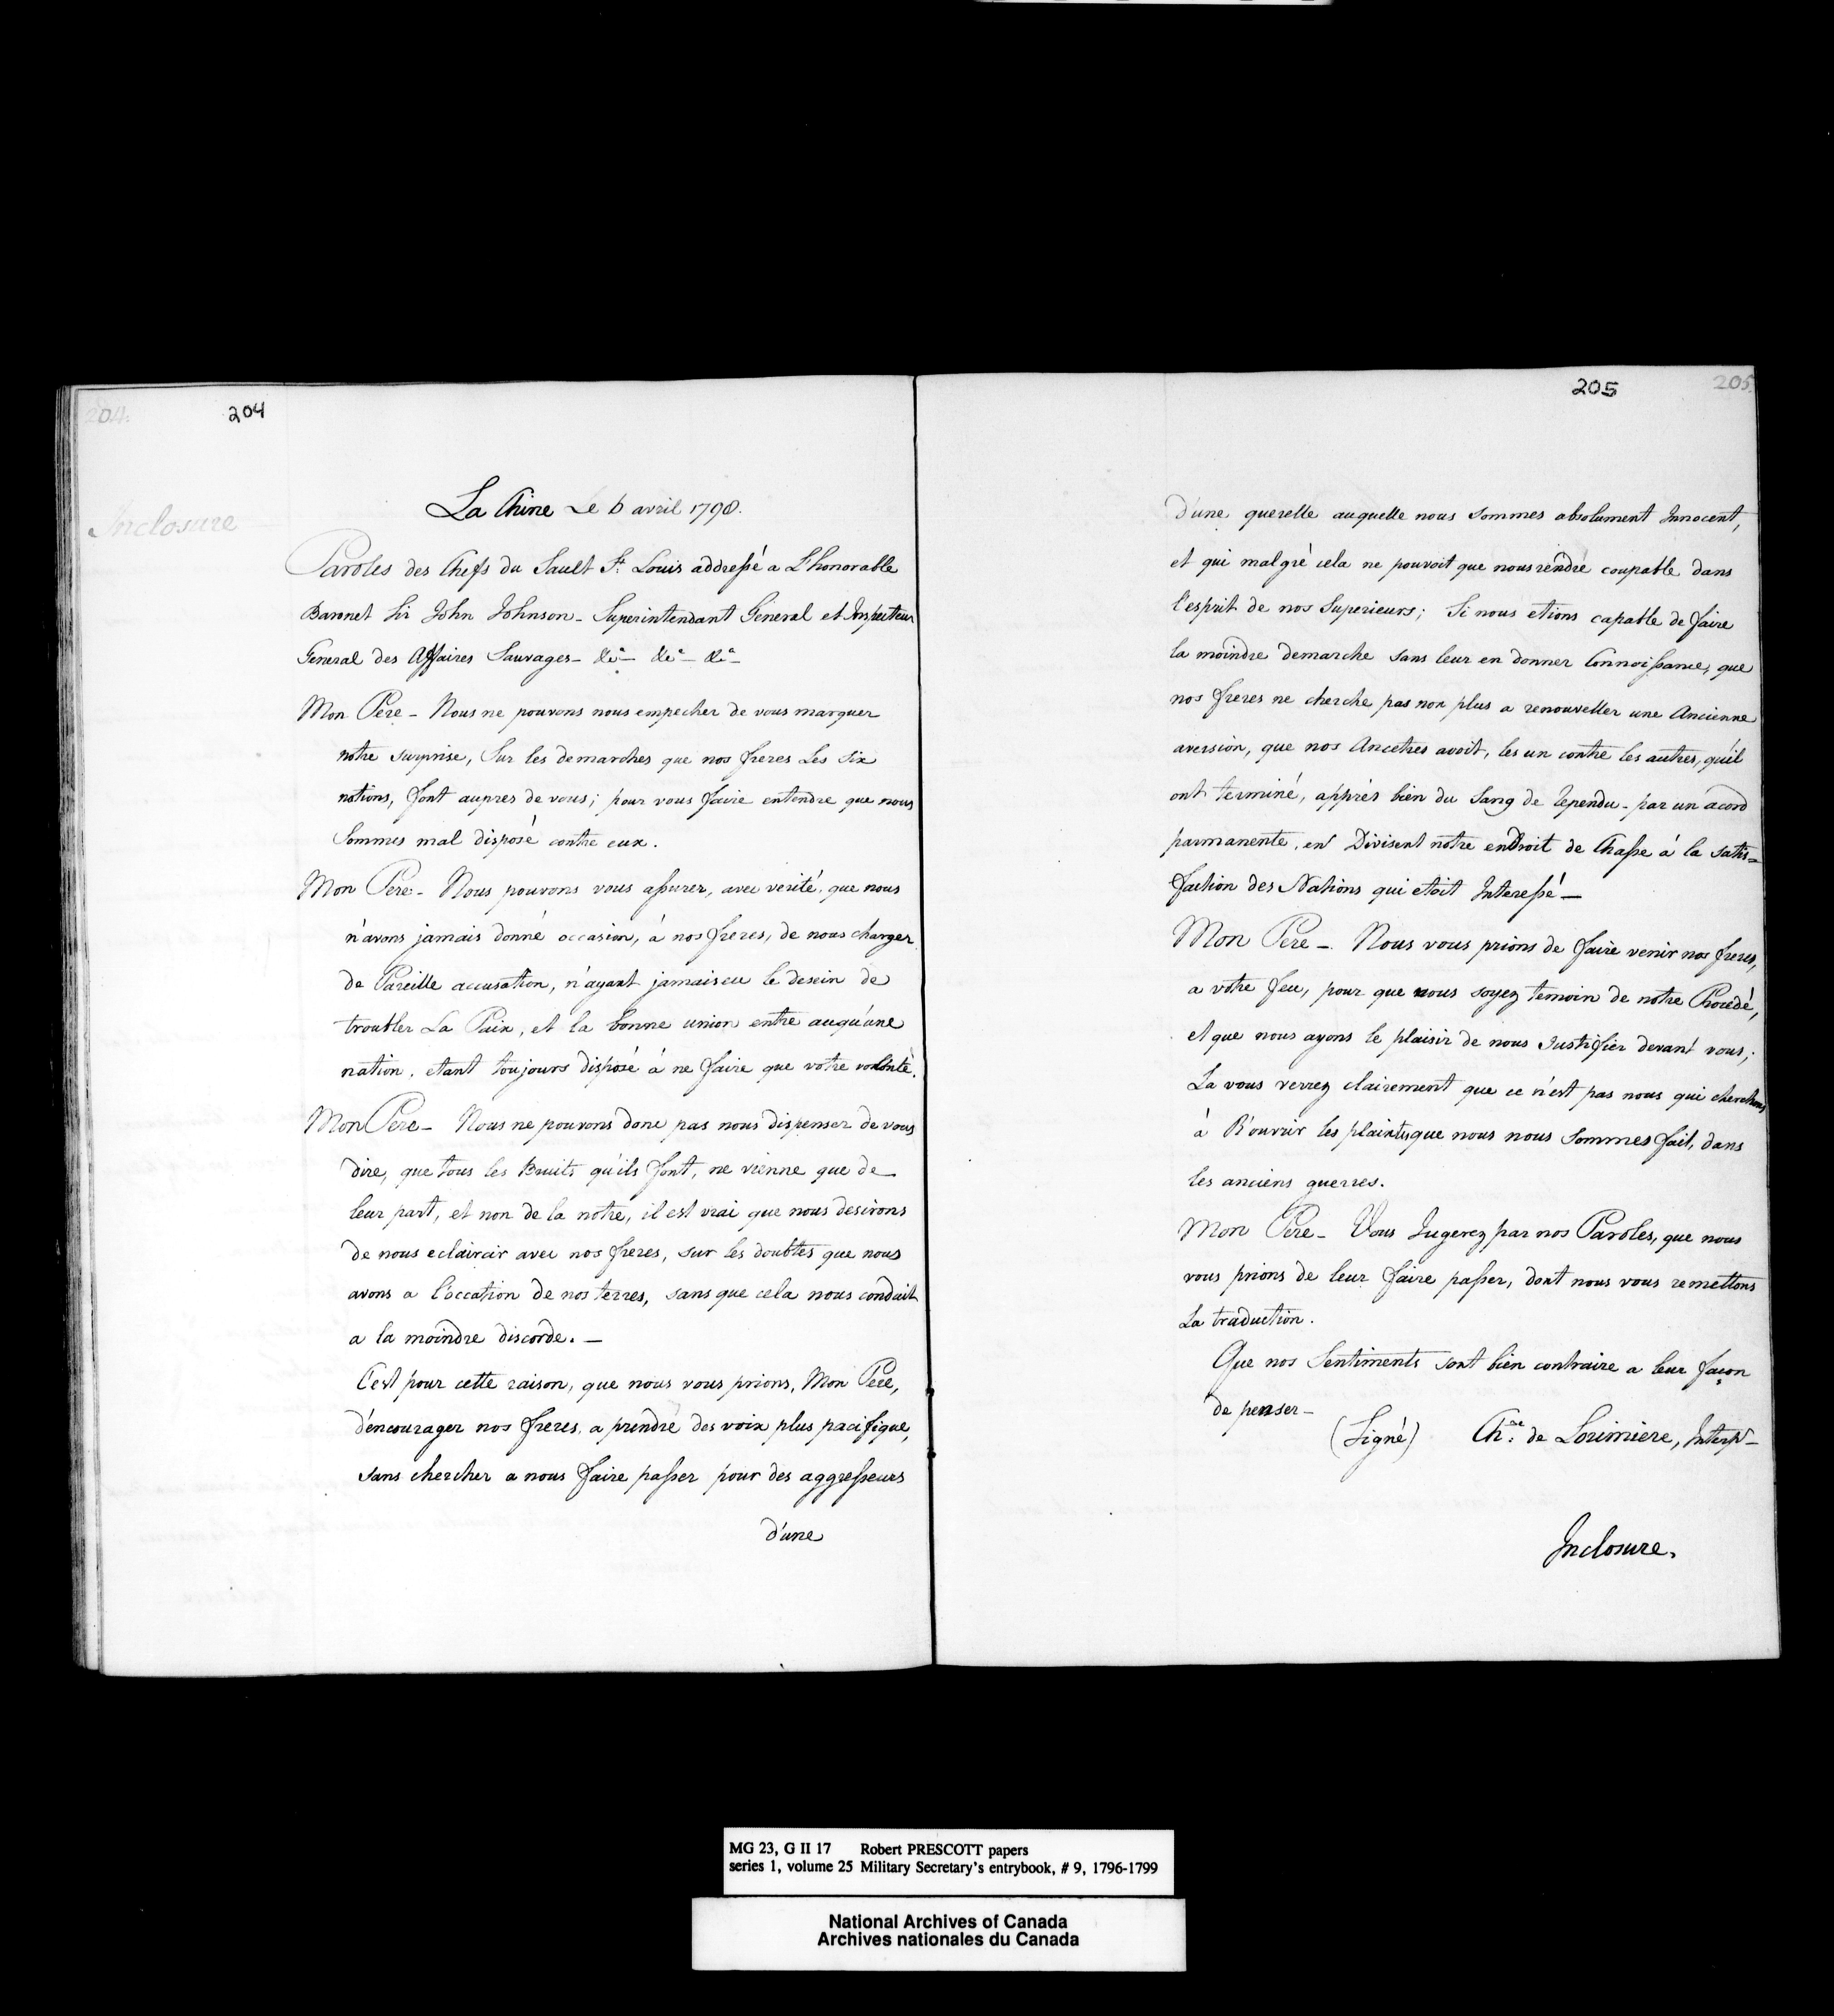 204.
204
Inclosure
La Chine Le 6 avril 1798.
Paroles des Chefs du Sault St. Louis addressé a L'honorable
Baronet Sir John Johnson - Superintendant General et Inspecteur
General des Affaires Sauvages - &ca - &ca - &ca -
Mon Pere - Nous ne pouvons nous empecher de vous marquer
notre surprise, Sur les demarches que nos freres Les Six
nations, font aupres de vous; pour vous faire entendre que nous
Sommes mal disposé contre eux.
Mon Pere - Nous pouvons vous assurer, avec verité, que nous
n'avons jamais donné occasion, à nos freres, de nous charger
de Pareille accusation, n'ayant jamais eu le desein de
troubler La Paix, et la bonne union entre auqu'une
nation. etant toujours disposé à ne faire que votre volonté.
Mon Pere - Nous ne pouvons donc pas nous dispenser de vous
dire, que tous les Bruits qu'ils font, ne vienne que de
leur part, et non de la notre, il est vrai que nous desirons
de nous eclaircir avec nos freres, sur les doubtes que nous
avons a l'occation de nos terres, sans que cela nous conduit
a la moindre discorde. -
C'est pour cette raison, que nous vous prions, Mon Pere,
d'encourager nos freres, a prendre des voix plus pacifique,
sans chercher a nous faire passer pour des aggresseurs
d'une
205
205.
d'une querelle auquelle nous sommes absolument Innocent,
et qui malgré cela ne pouvoit que nous rendre coupable dans
l'esprit de nos Superieurs; Si nous etions capable de faire
la moindre demarche sans leur en donner Connoissance, que
nos freres ne cherche pas non plus a renouveller une Ancienne
aversion, que nos Ancetres avoit, les un contre les autres, qu'il
ont terminé, apprès bien du Sang de Rependu - par un acord
parmanente, en Divisent notre endroit de Chasse á la satis=
faction des Nations qui etoit Interessé -
Mon Pere - Nous vous prions de faire venir nos freres,
a votre feu, pour que vous soyez temoin de notre Procedé,
et que nous ayons le plaisir de nous Justifier devant vous;
La vous verrez clairement que ce n'est pas nous qui cherchons
à R'ouvrir les plaintes que nous nous Sommes fait, dans
les anciens guerres.
Mon Pere - Vous Jugerez par nos Paroles, que nous
vous prions de leur faire passer, dont nous vous remettons
La traduction.
Que nos Sentiments sont bien contraire a leur façon
de penser -
(Signé) Ch: de Lorimiere, Interpr -
Inclosure.
MG 23, G II 17 Robert PRESCOTT papers
series 1, volume 25 Military Secretary's entrybook, # 9, 1796-1799
National Archives of Canada
Archives nationales du Canada